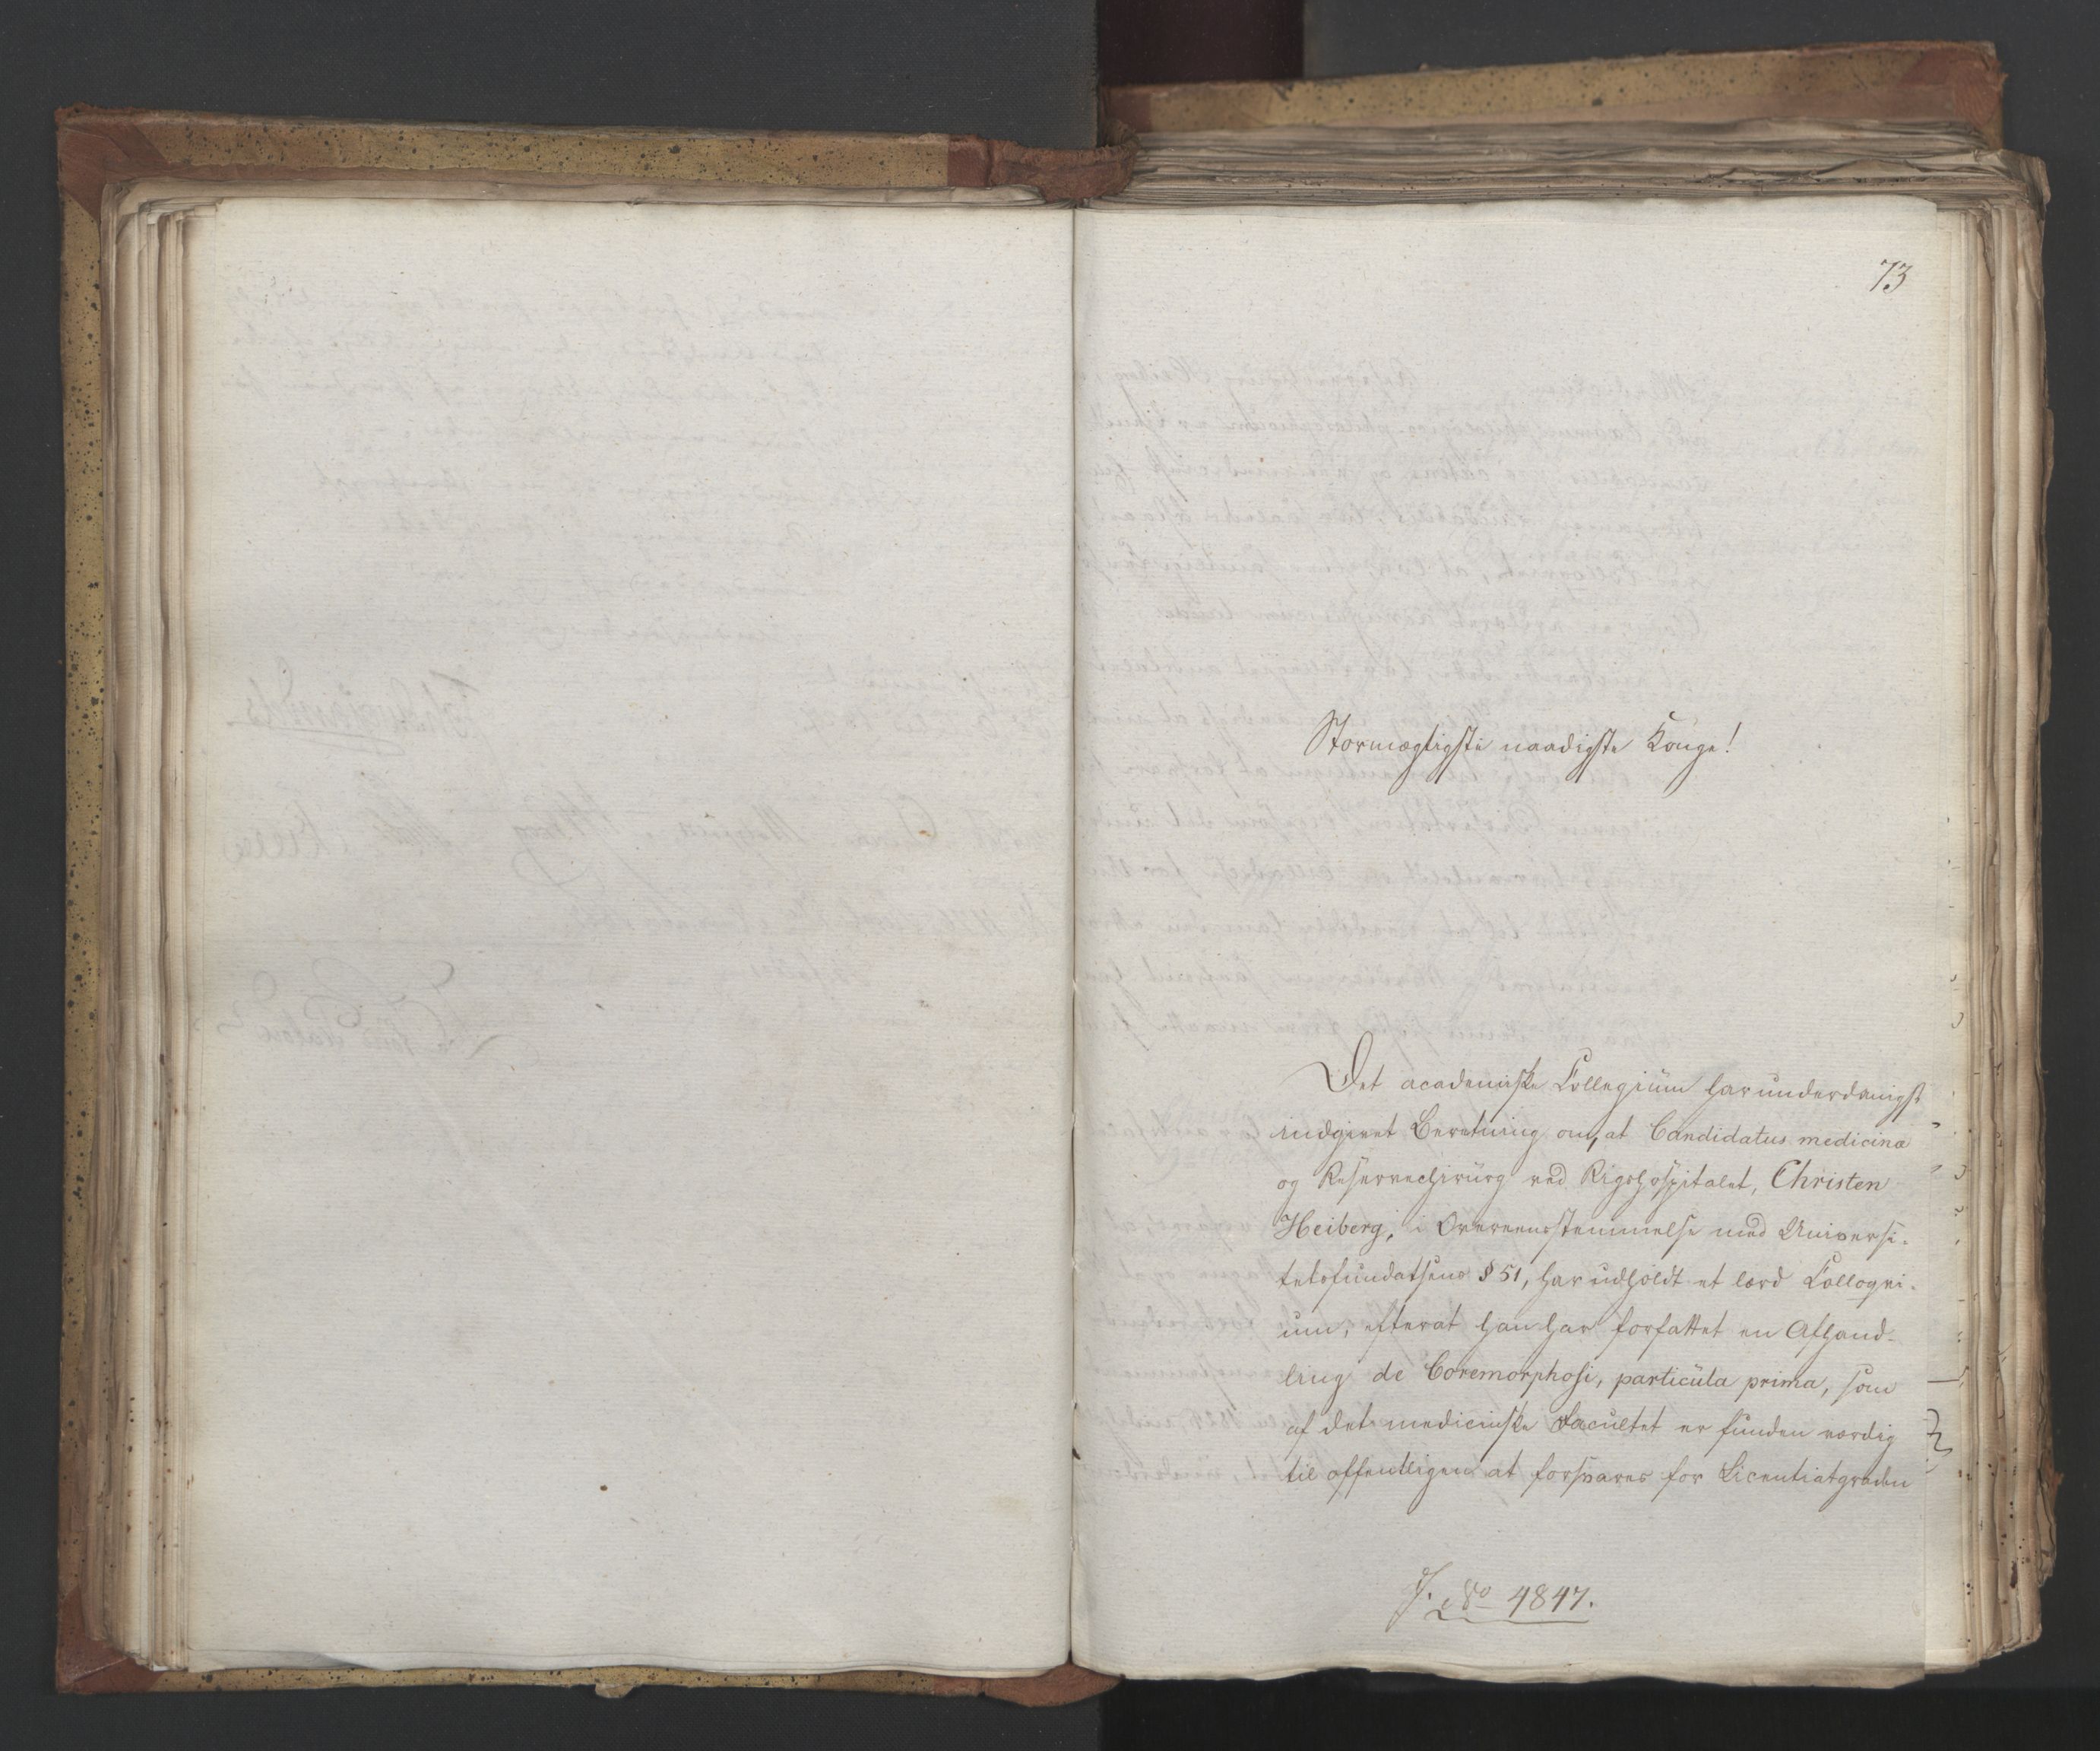 73
Stormægtigste naadigste Konge!
Det academiske Collegium har underdanigst
indgivet Beretning om, at Candidatus medicinæ
og Reservechirurg ved Rigshospitalet, Christen
Heiberg, i Overeensstemmelse med Universi-
tetsfundatsens § 51, har udholdt et lærd Colloqvi-
um, efterat han har forfattet en Afhand-
ling de Coremorphosi, particula prima, som
af det medicinske Facultet er funden værdig
til offentligen at forsvares for Licentiatgraden
J. No 4847.